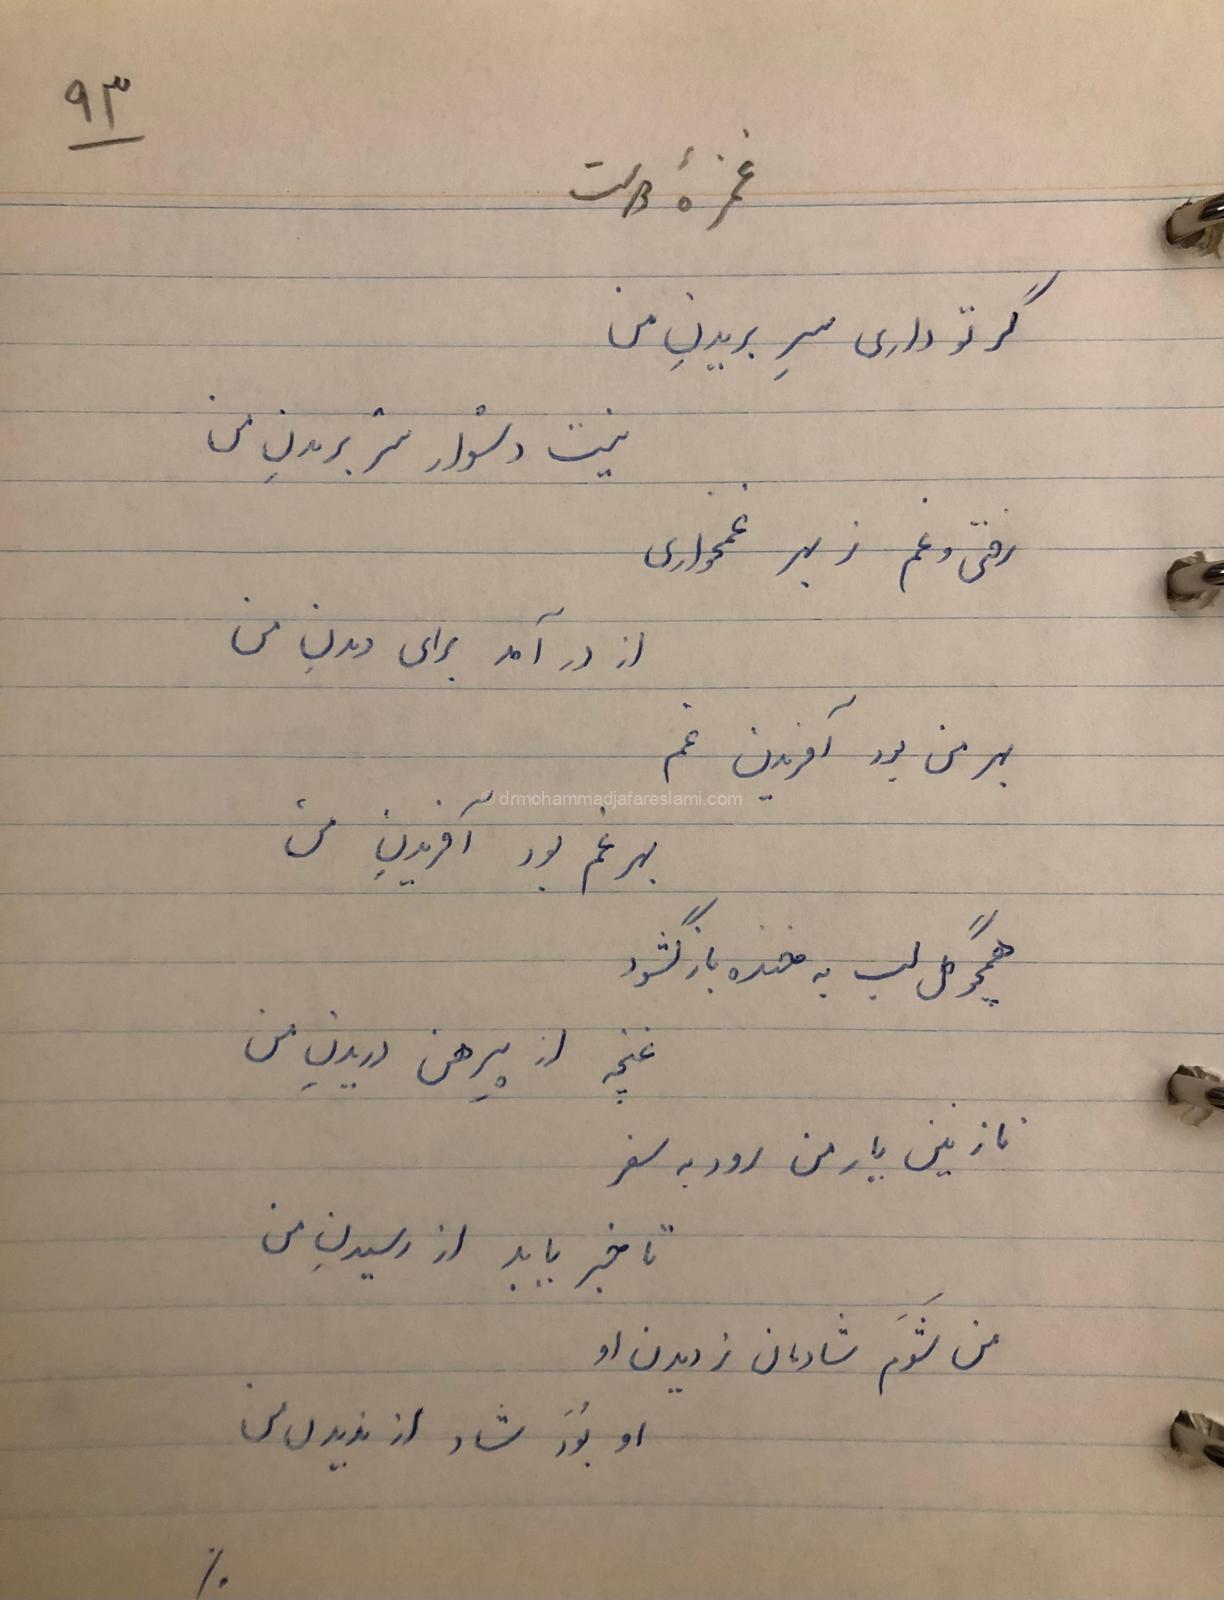 ۹۳
غمزهٔ دوست
گر تو داری سرِ بریدنِ من
نیست دشوار سر بریدنِ من
رفتی و غم ز بهر غمخواری
از در آمد برای دیدنِ من
بهر من بود آفریدن غم
بهر غم بود آفریدنِ من
همچو گل لب به خنده باز گشود
غنچه از پیرهن دریدنِ من
نازنین یار من رود به سفر
تا خبر یابد از رسیدنِ من
من شَوَم شادمان ز دیدن او
او بُوَد شاد از ندیدن من
© drmohammadjafareslami.com